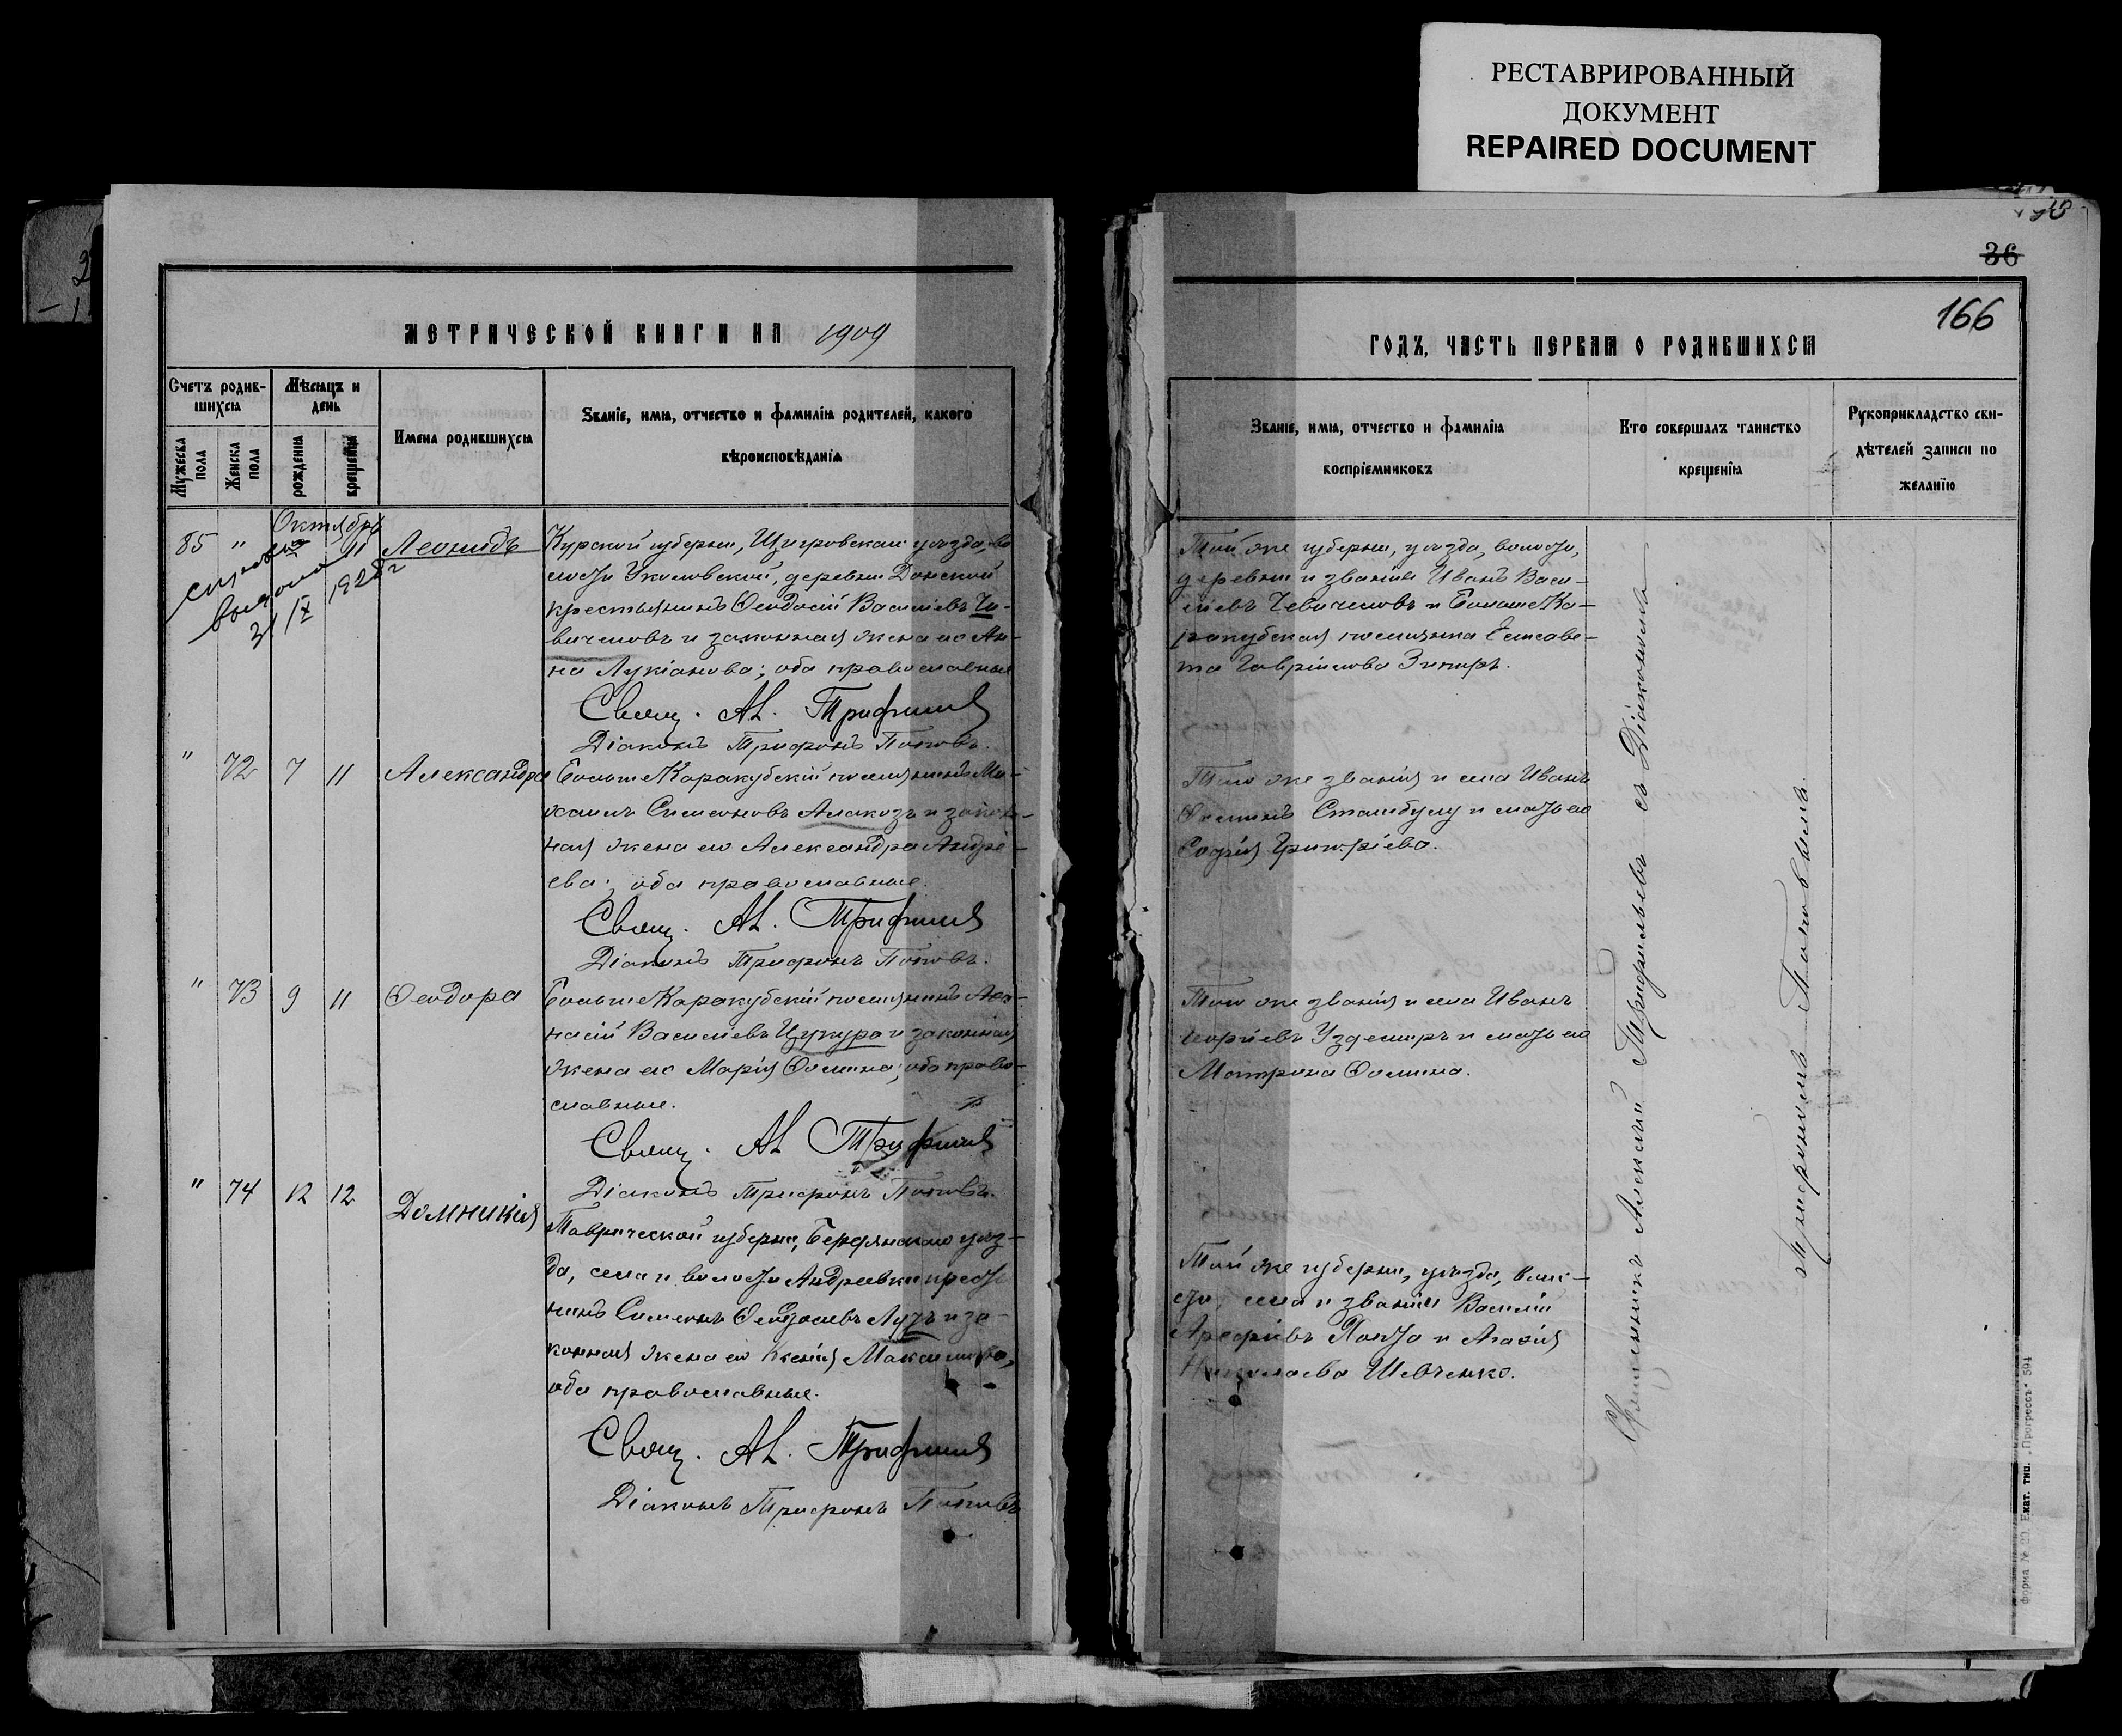 РЕСТАВРИРОВАННЫЙ
ДОКУМЕНТ
REPAIRED DOCUMENT
МЕТРИЧЕСКОЙ КНИГИ НА 1909
Счетъ родив-
шихся
Мѣсяцъ и
день
Мужеска
пола
Женска
пола
рожденія
крещенія
Имена родившихся
Званіе, имя, отчество и фамилія родителей, какого
вѣроисповѣданія
Октября
85 " 11 Леонидъ
31/IX 1928 г
Курской губерніи, Щигровскаго уѣзда, во-
лости Уколовской, деревни Донской
крестьянинъ Ѳеодосій Васильевъ Че-
виче­ловъ и законная жена его Ан-
на Лукіанова; оба православные
Свящ. Ал. Трифильев
Діаконъ Трифонъ Поповъ.
" 72 7 11 Александра
Больше Каракубскій поселянинъ Ми-
хаилъ Симеоновъ Алакозъ и закон-
ная жена его Александра Андре-
ева; оба православные.
Свящ. Ал. Трифильев
Діаконъ Трифонъ Поповъ.
" 73 9 11 Ѳеодора
Больше Каракубскій поселянинъ Аѳа-
насій Васильевъ Цукура и законная
жена его Марія Ѳомина; оба право-
славные.
Свящ. Ал Трифильев
Діаконъ Трифонъ Поповъ.
" 74 12 12 Домникія
Таврической губерніи, Бердянскаго уѣз-
да, села и волости Андреевки кресть
нинъ Симеонъ Ѳеодосіевъ Лузъ и за-
конная жена его Ксенія Максимова,
оба православные.
Свящ. Ал. Трифильев
Діаконъ Трифонъ Поповъ
36
166
ГОДЪ, ЧАСТЬ ПЕРВАЯ О РОДИВШИХСЯ
Званіе, имя, отчество и фамилія
воспріемниковъ
Кто совершалъ таинство
крещенія
Рукоприкладство сви-
дѣтелей записи по
желанію
Той же губерніи, уѣзда, волости,
деревни и званія Иванъ Васи-
льевъ Чевичеловъ и Больше Ка-
ракубская поселянка Елисаве-
та Гавріилова
Того же званія и села Иванъ
Ѳоминъ Стамбулу и мать его
Софія Григоріева.
Того же званія и села Иванъ
Георгіевъ Уздемиръ и мать его
Матрона Ѳомина.
Той же губерніи, уѣзда, волос-
ти, села и званія Василій
Арефіевъ и Агафія
Николаева Шевченко.
Священникъ Алексій Трифильевъ съ Діакономъ
Трифономъ Поповымъ.
форма № 20. Екат. тип. „Прогрессъ“ 594